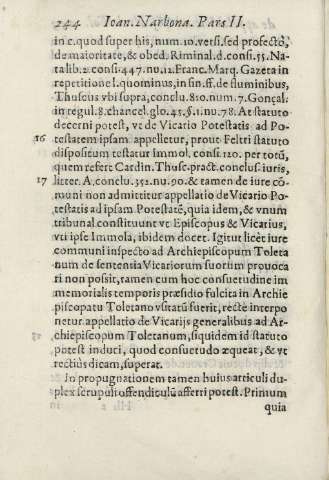 244 Ioan. Narbona. Pars II.
in c. quod super his, num. 10. versi. sed profectò,
de maioritate, & obed. Riminal. d. consi. 55. Na-
ta lib. 2. consi. 447. nu. 12. Franc. Marq. Gazeta in
repetitione l. quominus, in fin. ff. de fluminibus,
Thuscus vbi supra, conclu. 810. num. 7. Gonçal.
in regul. 8. chancel. glo. 45. §. 1. nu. 78. At statuto
decerni potest, vt de Vicario Potestatis ad Po-
16 testatem ipsam appelletur, prout Feltri statuto
dispositum testatur Immol. consi. 120. per totū,
quem refert Cardin. Thusc. pract. conclus. iuris,
17 litter. A. conclu. 352. nu. 90. & tamen de iure cō-
muni non admittitur appellatio de Vicario Po-
testatis ad ipsam Potestatē, quia idem, & vnum
tribunal constituunt vt Episcopus & Vicarius,
vti ipse Immola, ibidem docet. Igitut licèt iure
communi inspecto ad Archiepiscopum Toleta
num de sententia Vicariorum suorum prouoca
ri non possit, tamen cum hoc consuetudine im
memorialis temporis præsidio fulcita in Archie
piscopatu Toletano vsitatū fuerit, rectè interpo
netur appellatio de Vicarijs generalibus ad Ar-
chiepiscopum Toletanum, siquidem id statuto
potest induci, quod consuetudo æquat, & vt
rectiùs dicam, superat.
In propugnationem tamen huius articuli du-
plex scrupuli offendiculū afferri potest. Primum
quia